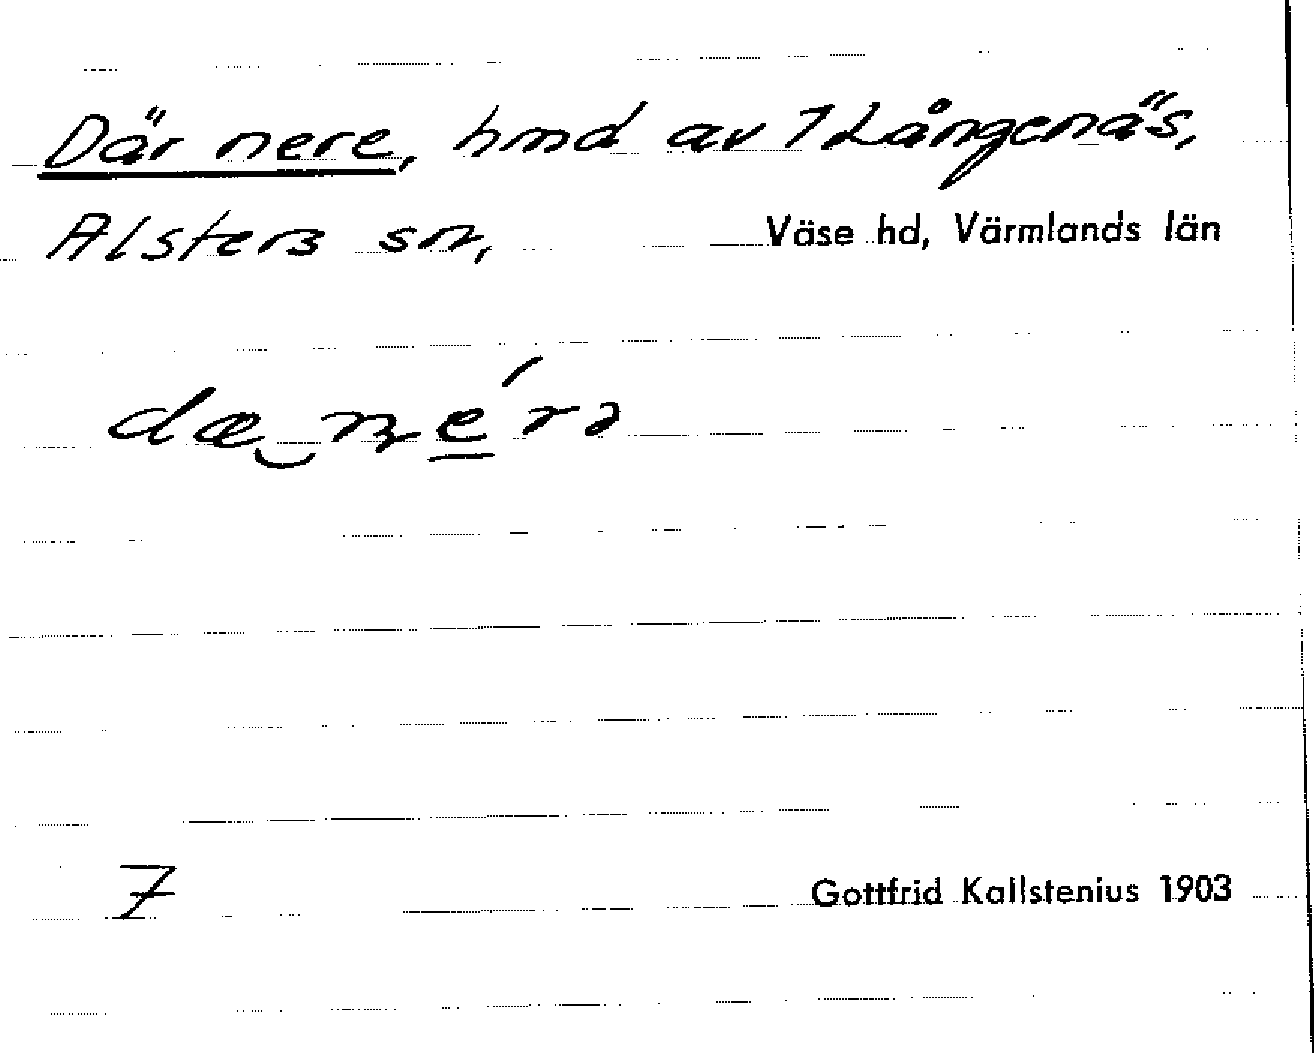 Där nere, hmd av 1 Långenäs,
Alsters sn, Väse hd, Värmlands län
dæ‿néra
7
Gottfrid Kallstenius 1903